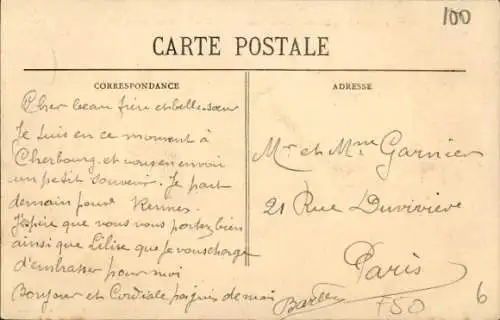 100
CARTE POSTALE
CORRESPONDANCE
ADRESSE
Cher beau frère et belle-sœur
Je suis en ce moment à
Cherbourg et vous en envoi
un petit souvenir. Je part
demain pour Rennes.
J'espère que vous vous portez bien
ainsi que Lilise que je vous charge
d'embrasser pour moi
Bonjour et Cordiale poignés de main
Mr et Mme Garnier
21 Rue Duvivier
Paris
750
6